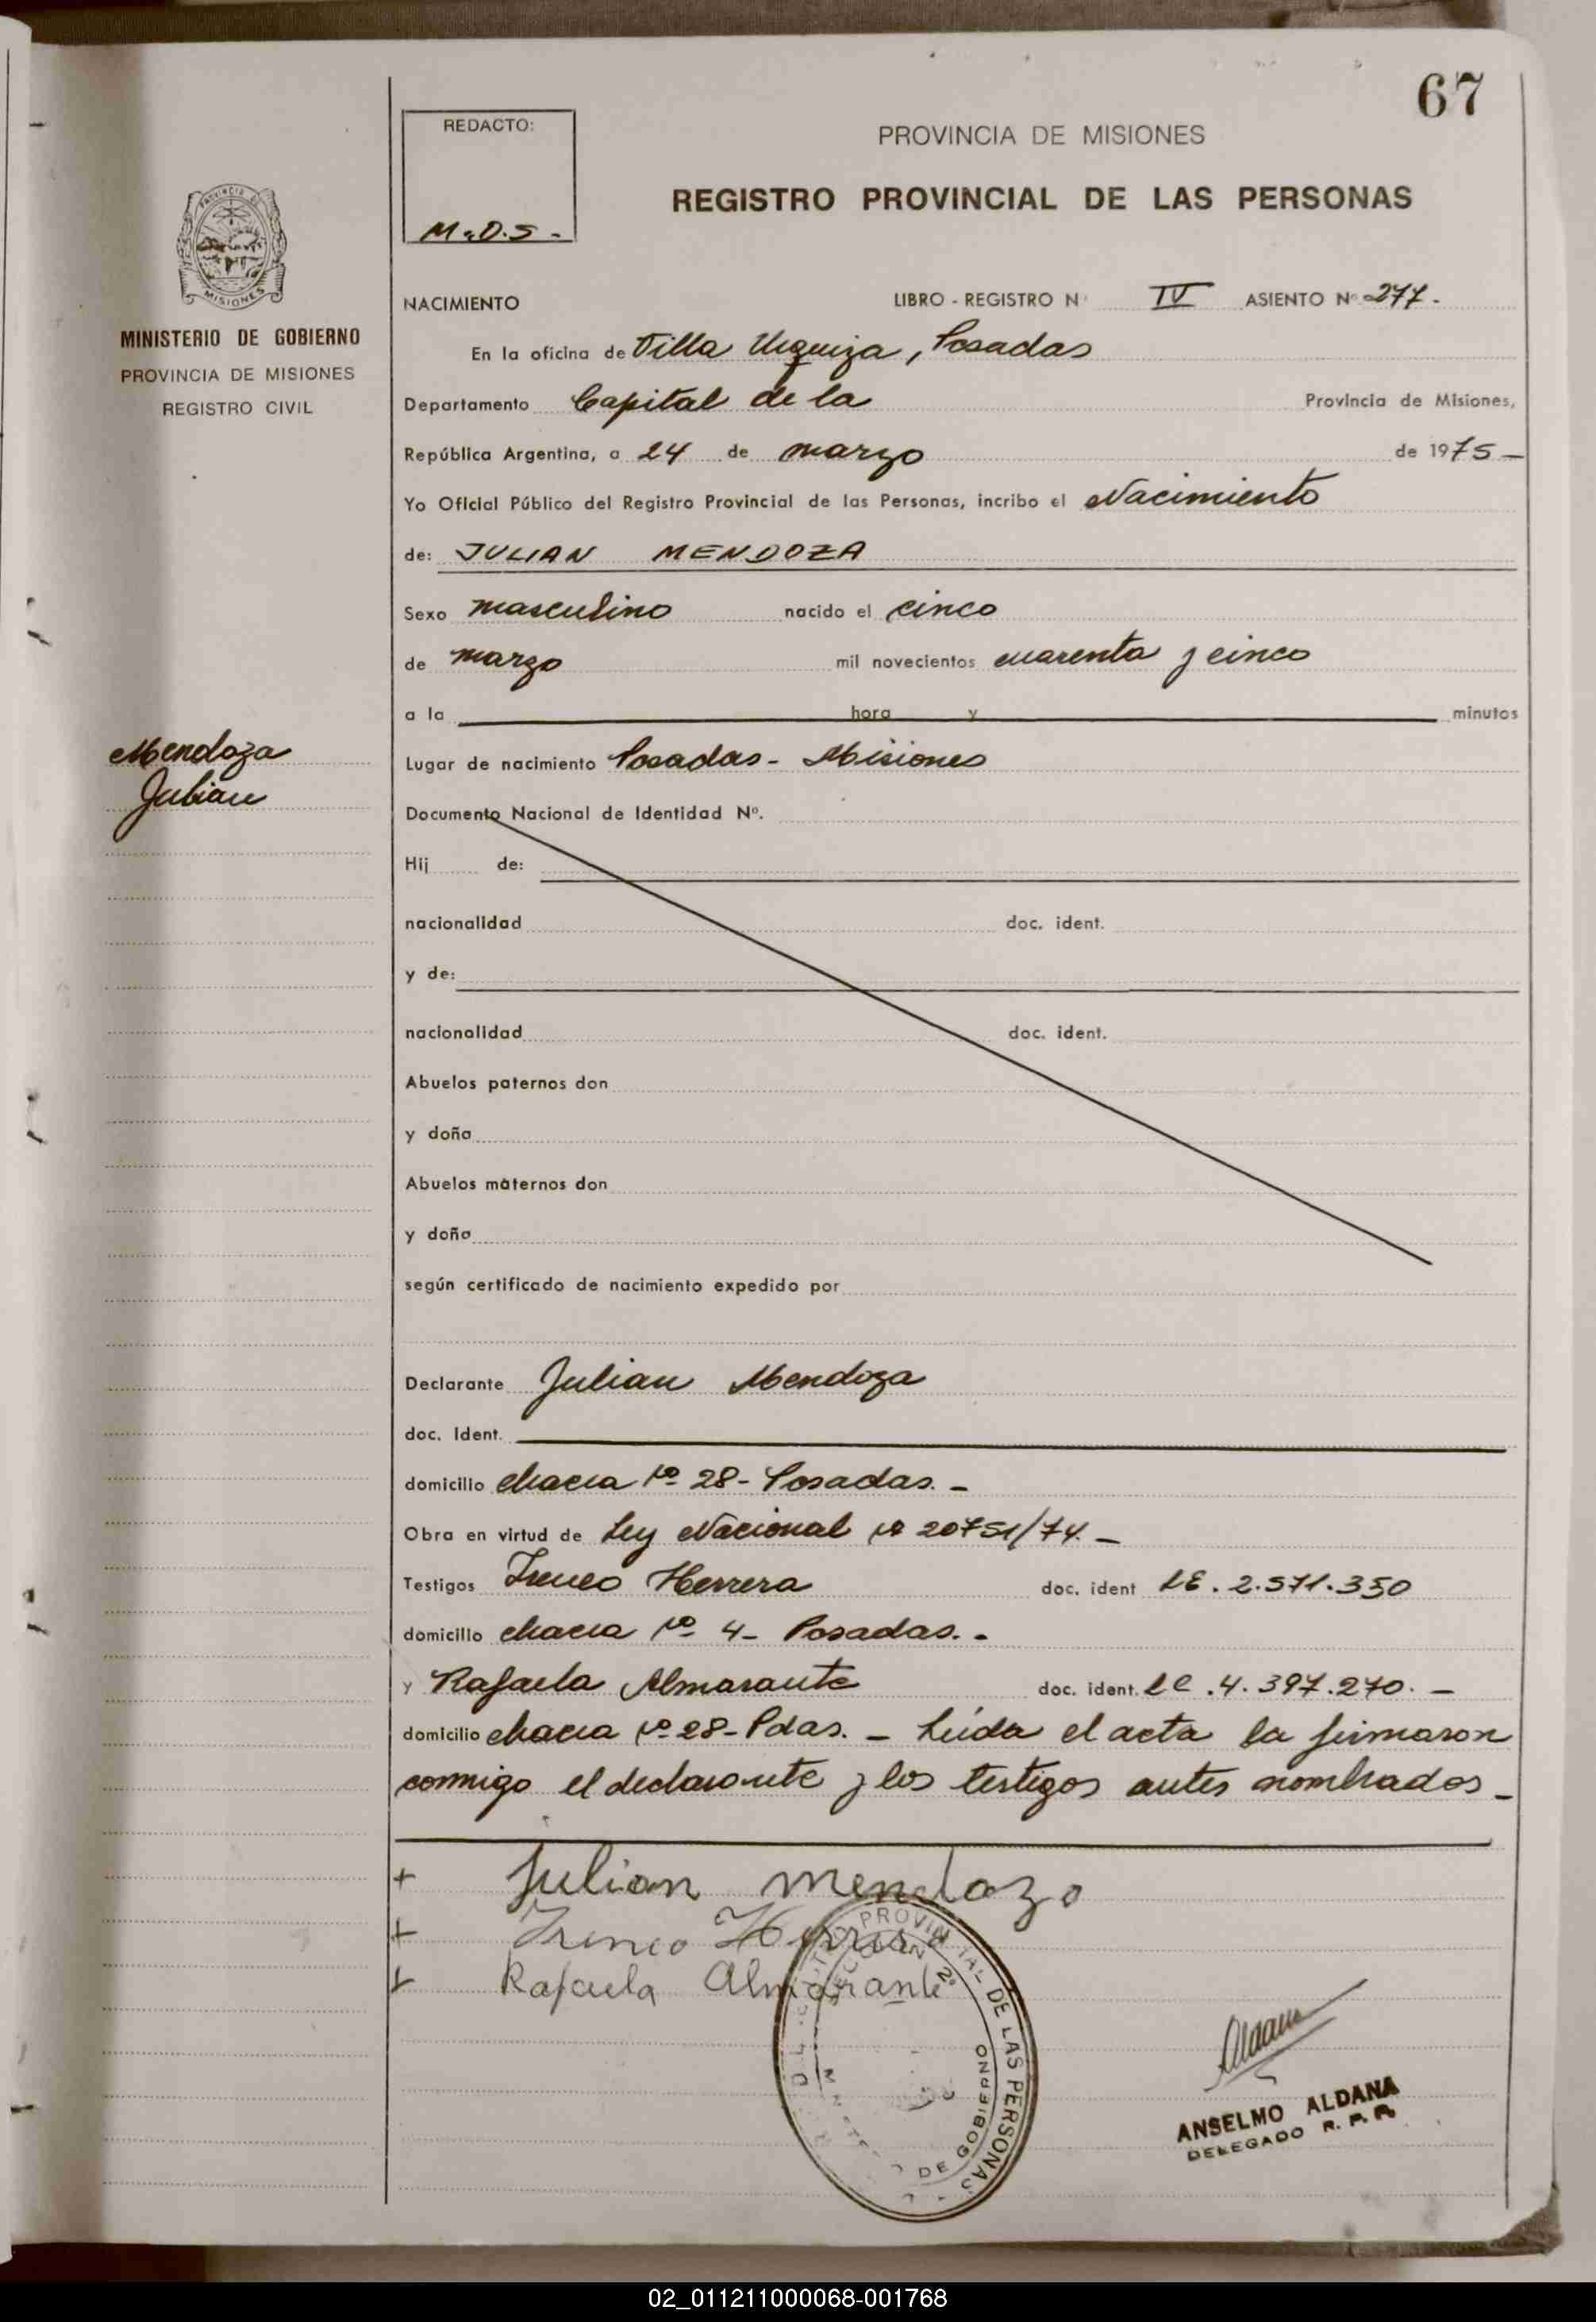 67
REDACTO:
M.D.S -
PROVINCIA DE MISIONES
REGISTRO PROVINCIAL DE LAS PERSONAS
PROVINCIA DE
MISIONES
MINISTERIO DE GOBIERNO
PROVINCIA DE MISIONES
REGISTRO CIVIL
NACIMIENTO LIBRO - REGISTRO N° IV ASIENTO N° 277.-
En la oficina de Villa Urquiza, Posadas
Departamento Capital de la Provincia de Misiones,
República Argentina, a 24 de marzo de 1975-
Yo Oficial Público del Registro Provincial de las Personas, incribo el Nacimiento
de: JULIAN MENDOZA
Sexo masculino nacido el cinco
de marzo mil novecientos cuarenta y cinco
a la hora y minutos
Mendoza
Julian
Lugar de nacimiento Posadas - Misiones
Documento Nacional de Identidad Nº.
Hij de:
nacionalidad doc. ident.
y de:
nacionalidad doc. ident.
Abuelos paternos don
y doña
Abuelos maternos don
y doña
según certificado de nacimiento expedido por
Declarante Julian Mendoza
doc. Ident.
domicilio chacra Nº 28- Posadas.-
Obra en virtud de Ley Nacional Nº 20751/74.-
Testigos Ireneo Herrera doc. ident LE. 2.571.350
domicilio chacra Nº 4- Posadas.-
y Rafaela Almarante doc. ident. LC.4.397.270.-
domicilio chacra Nº 28- Pdas.- Leída el acta la firmaron
conmigo el declarante y los testigos antes nombrados-
+ Julian mendozo
+ Ireneo Herrera
+ Rafaela Almarante
PROVINCIAL DE LAS PERSONAS
SECCION 2º
DE GOBIERNO
Aldana
ANSELMO ALDANA
DELEGADO R. P. P.
02_011211000068-001768